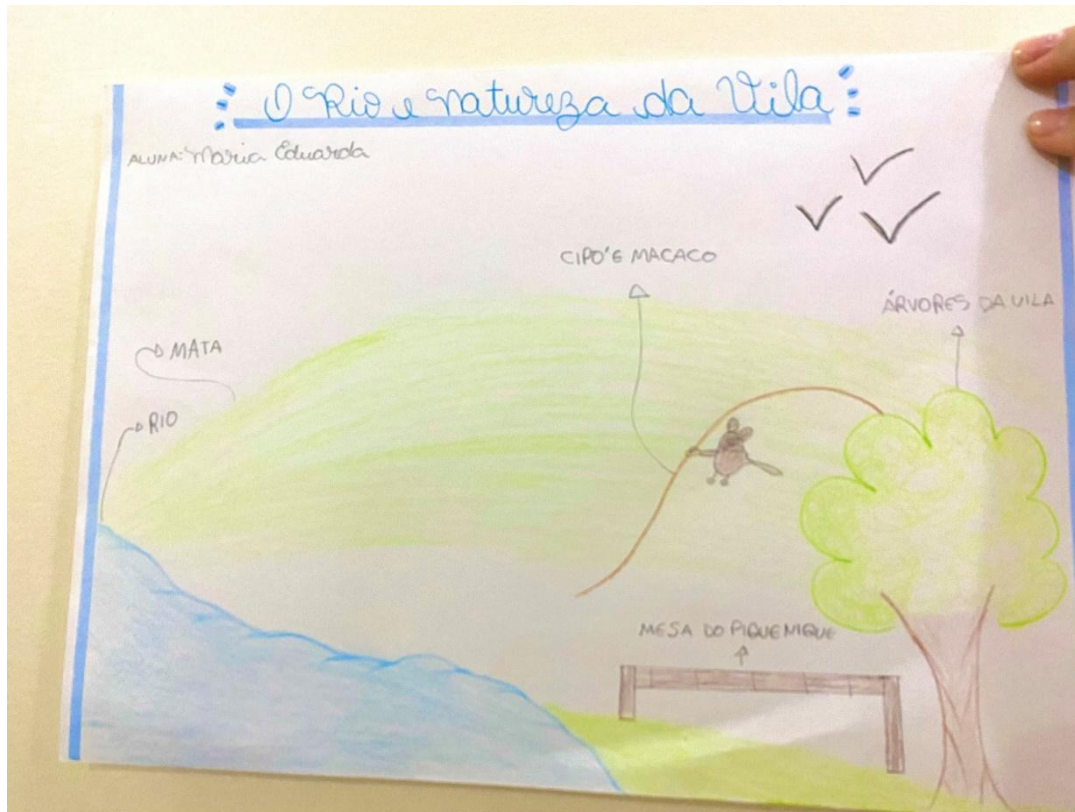 O Rio e natureza da Vila
ALUNA: Maria Eduarda
CIPÓ E MACACO
ÁRVORES DA VILA
MATA
RIO
MESA DO PIQUENIQUE